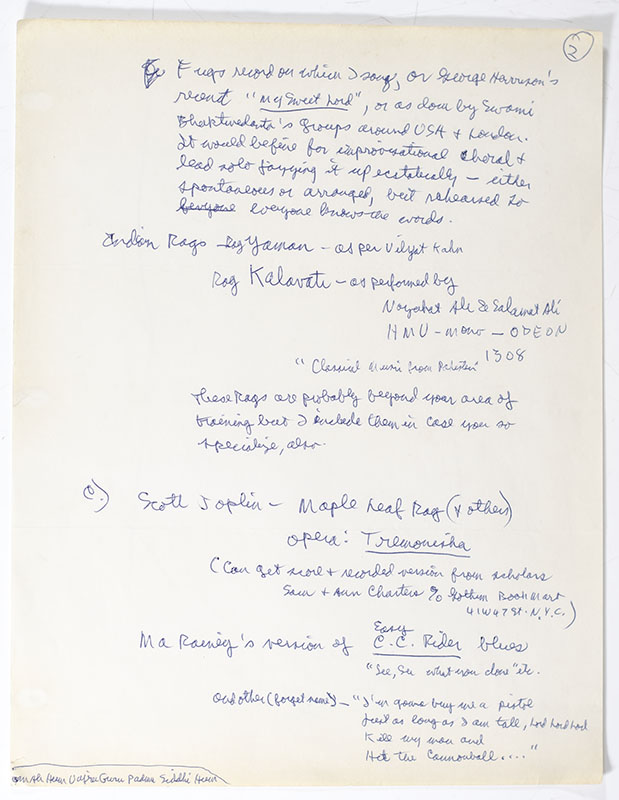 2
Fugs record on which I sang, or George Harrison's
recent "My Sweet Lord", or as done by Swami
Bhaktivedanta's groups around USA & London.
It would be fine for improvisational choral &
lead solo jazzing it up ecstatically — either
spontaneous or arranged, but rehearsed so
everyone knows the words.
Indian Rags — Rag Yaman — as per Vilyat Kahn
Rag Kalavati — as performed by
Nazakat Ali & Salamat Ali
HMV - mono — ODEON
1308
"Classical Music from Pakistan"
These Rags are probably beyond your area of
training but I include them in case you so
specialize, also.
C)
Scott Joplin — Maple Leaf Rag (& others)
opera: Tremonisha
(Can get score & recorded version from scholars
Sam & Ann Charters c/o Gotham Book Mart
41 W 47 St. N.Y.C.)
Easy
Ma Rainey's version of C.C. Rider blues
"See, See what you done" etc.
and other (forget name) — "I'm gonna buy me a pistol
Just as long as I am tall, Lord Lord Lord
Kill my man and
Hop the Cannonball...."
Om Ah Hum Vajra Guru Padma Siddhi Hum